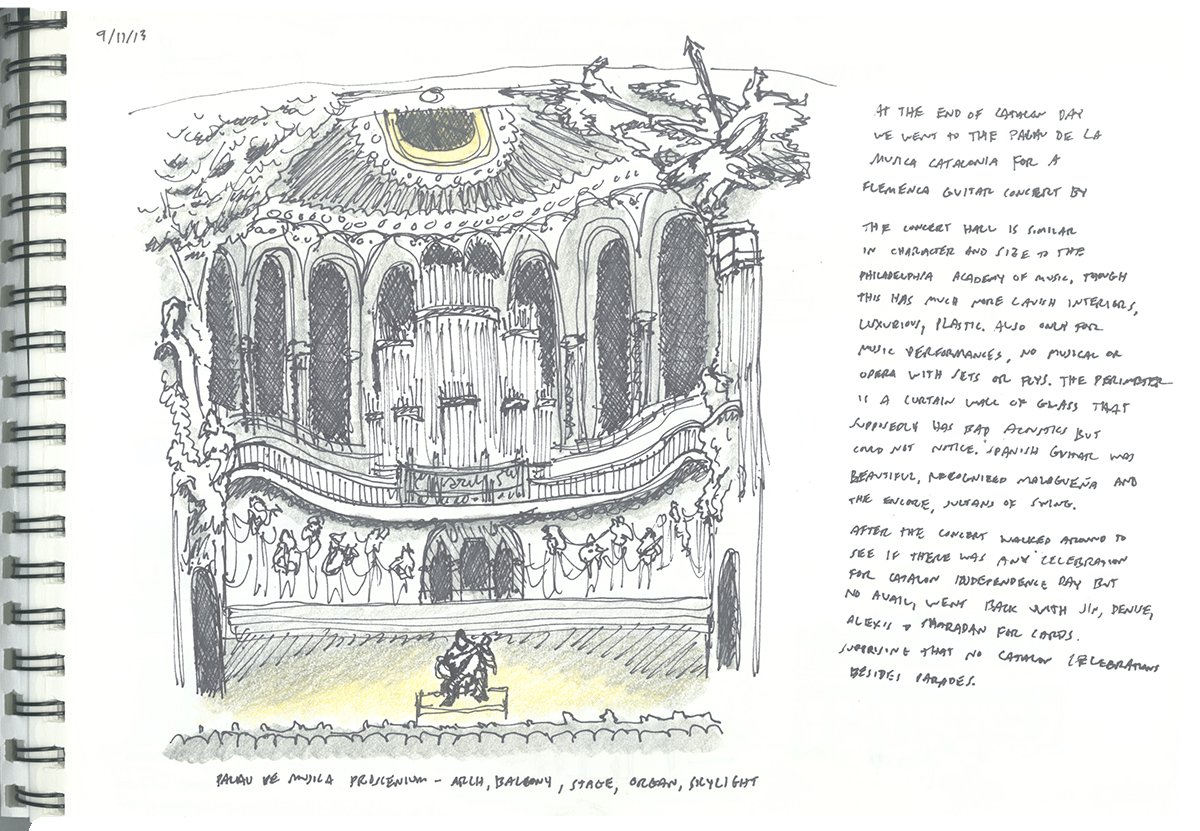 9/11/13
AT THE END OF CATALON DAY
WE WENT TO THE PALAU DE LA
MUSICA CATALONIA FOR A
FLEMENCA GUITAR CONCERT BY
THE CONCERT HALL IS SIMILAR
IN CHARACTER AND SIZE TO THE
PHILADELPHIA ACADEMY OF MUSIC, THOUGH
THIS HAS MUCH MORE LAVISH INTERIORS,
LUXURIOUS, PLASTIC. ALSO ONLY FOR
MUSIC PERFORMANCES, NO MUSICAL OR
OPERA WITH SETS OR FLYS. THE PERIMETER
IS A CURTAIN WALL OF GLASS THAT
HAS BAD ACOUSTICS BUT
COULD NOT NOTICE. SPANISH GUITAR WAS
BEAUTIFUL, RECOGNIZED MALAGUEÑA AND
THE ENCORE, SULTANS OF SWING.
AFTER THE CONCERT WALKED AROUND TO
SEE IF THERE WAS ANY CELEBRATION
FOR CATALON INDEPENDENCE DAY BUT
NO AVAIL, WENT BACK WITH JIN, DENUE,
ALEXIS & SHARADAN FOR CARDS.
SUPRISING THAT NO CATALON CELEBRATIONS
BESIDES PARADES.
PALAU DE MUSICA PROSCENIUM - ARCH, BALCONY, STAGE, ORGAN, SKYLIGHT